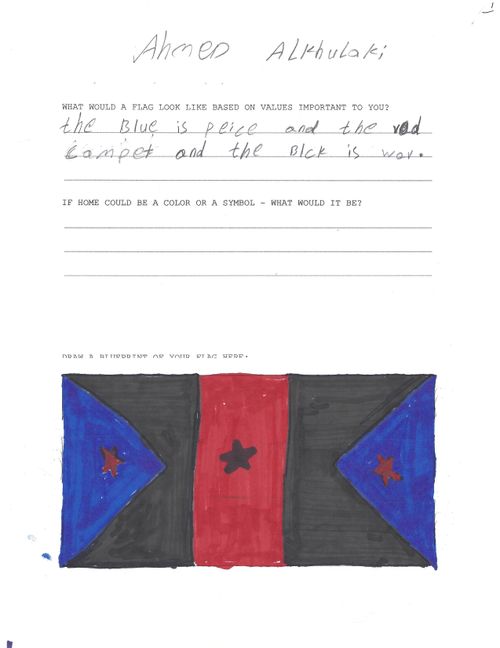 Ahmed Alkhulaki
WHAT WOULD A FLAG LOOK LIKE BASED ON VALUES IMPORTANT TO YOU?
the Blue is peice and the red
and the Blck is war.
IF HOME COULD BE A COLOR OR A SYMBOL - WHAT WOULD IT BE?
DRAW A BLUEPRINT OF YOUR FLAG HERE: